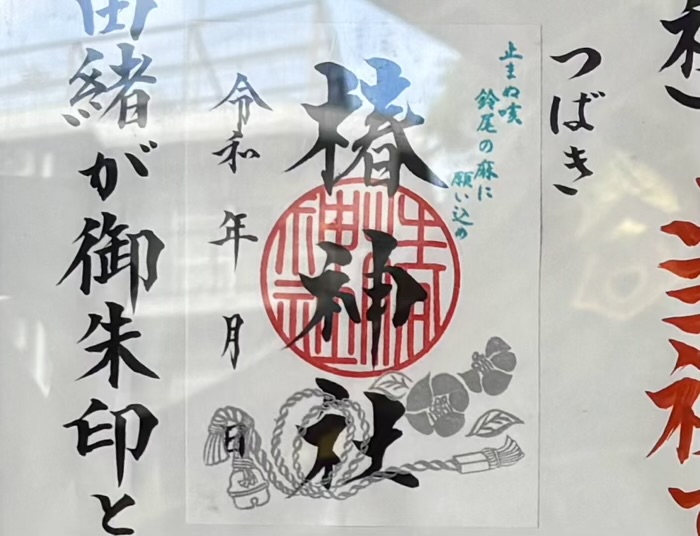 つばき
止まぬ咳
鈴尾の麻に
願い込め
椿神社
令和 年 月 日
由緒が御朱印と